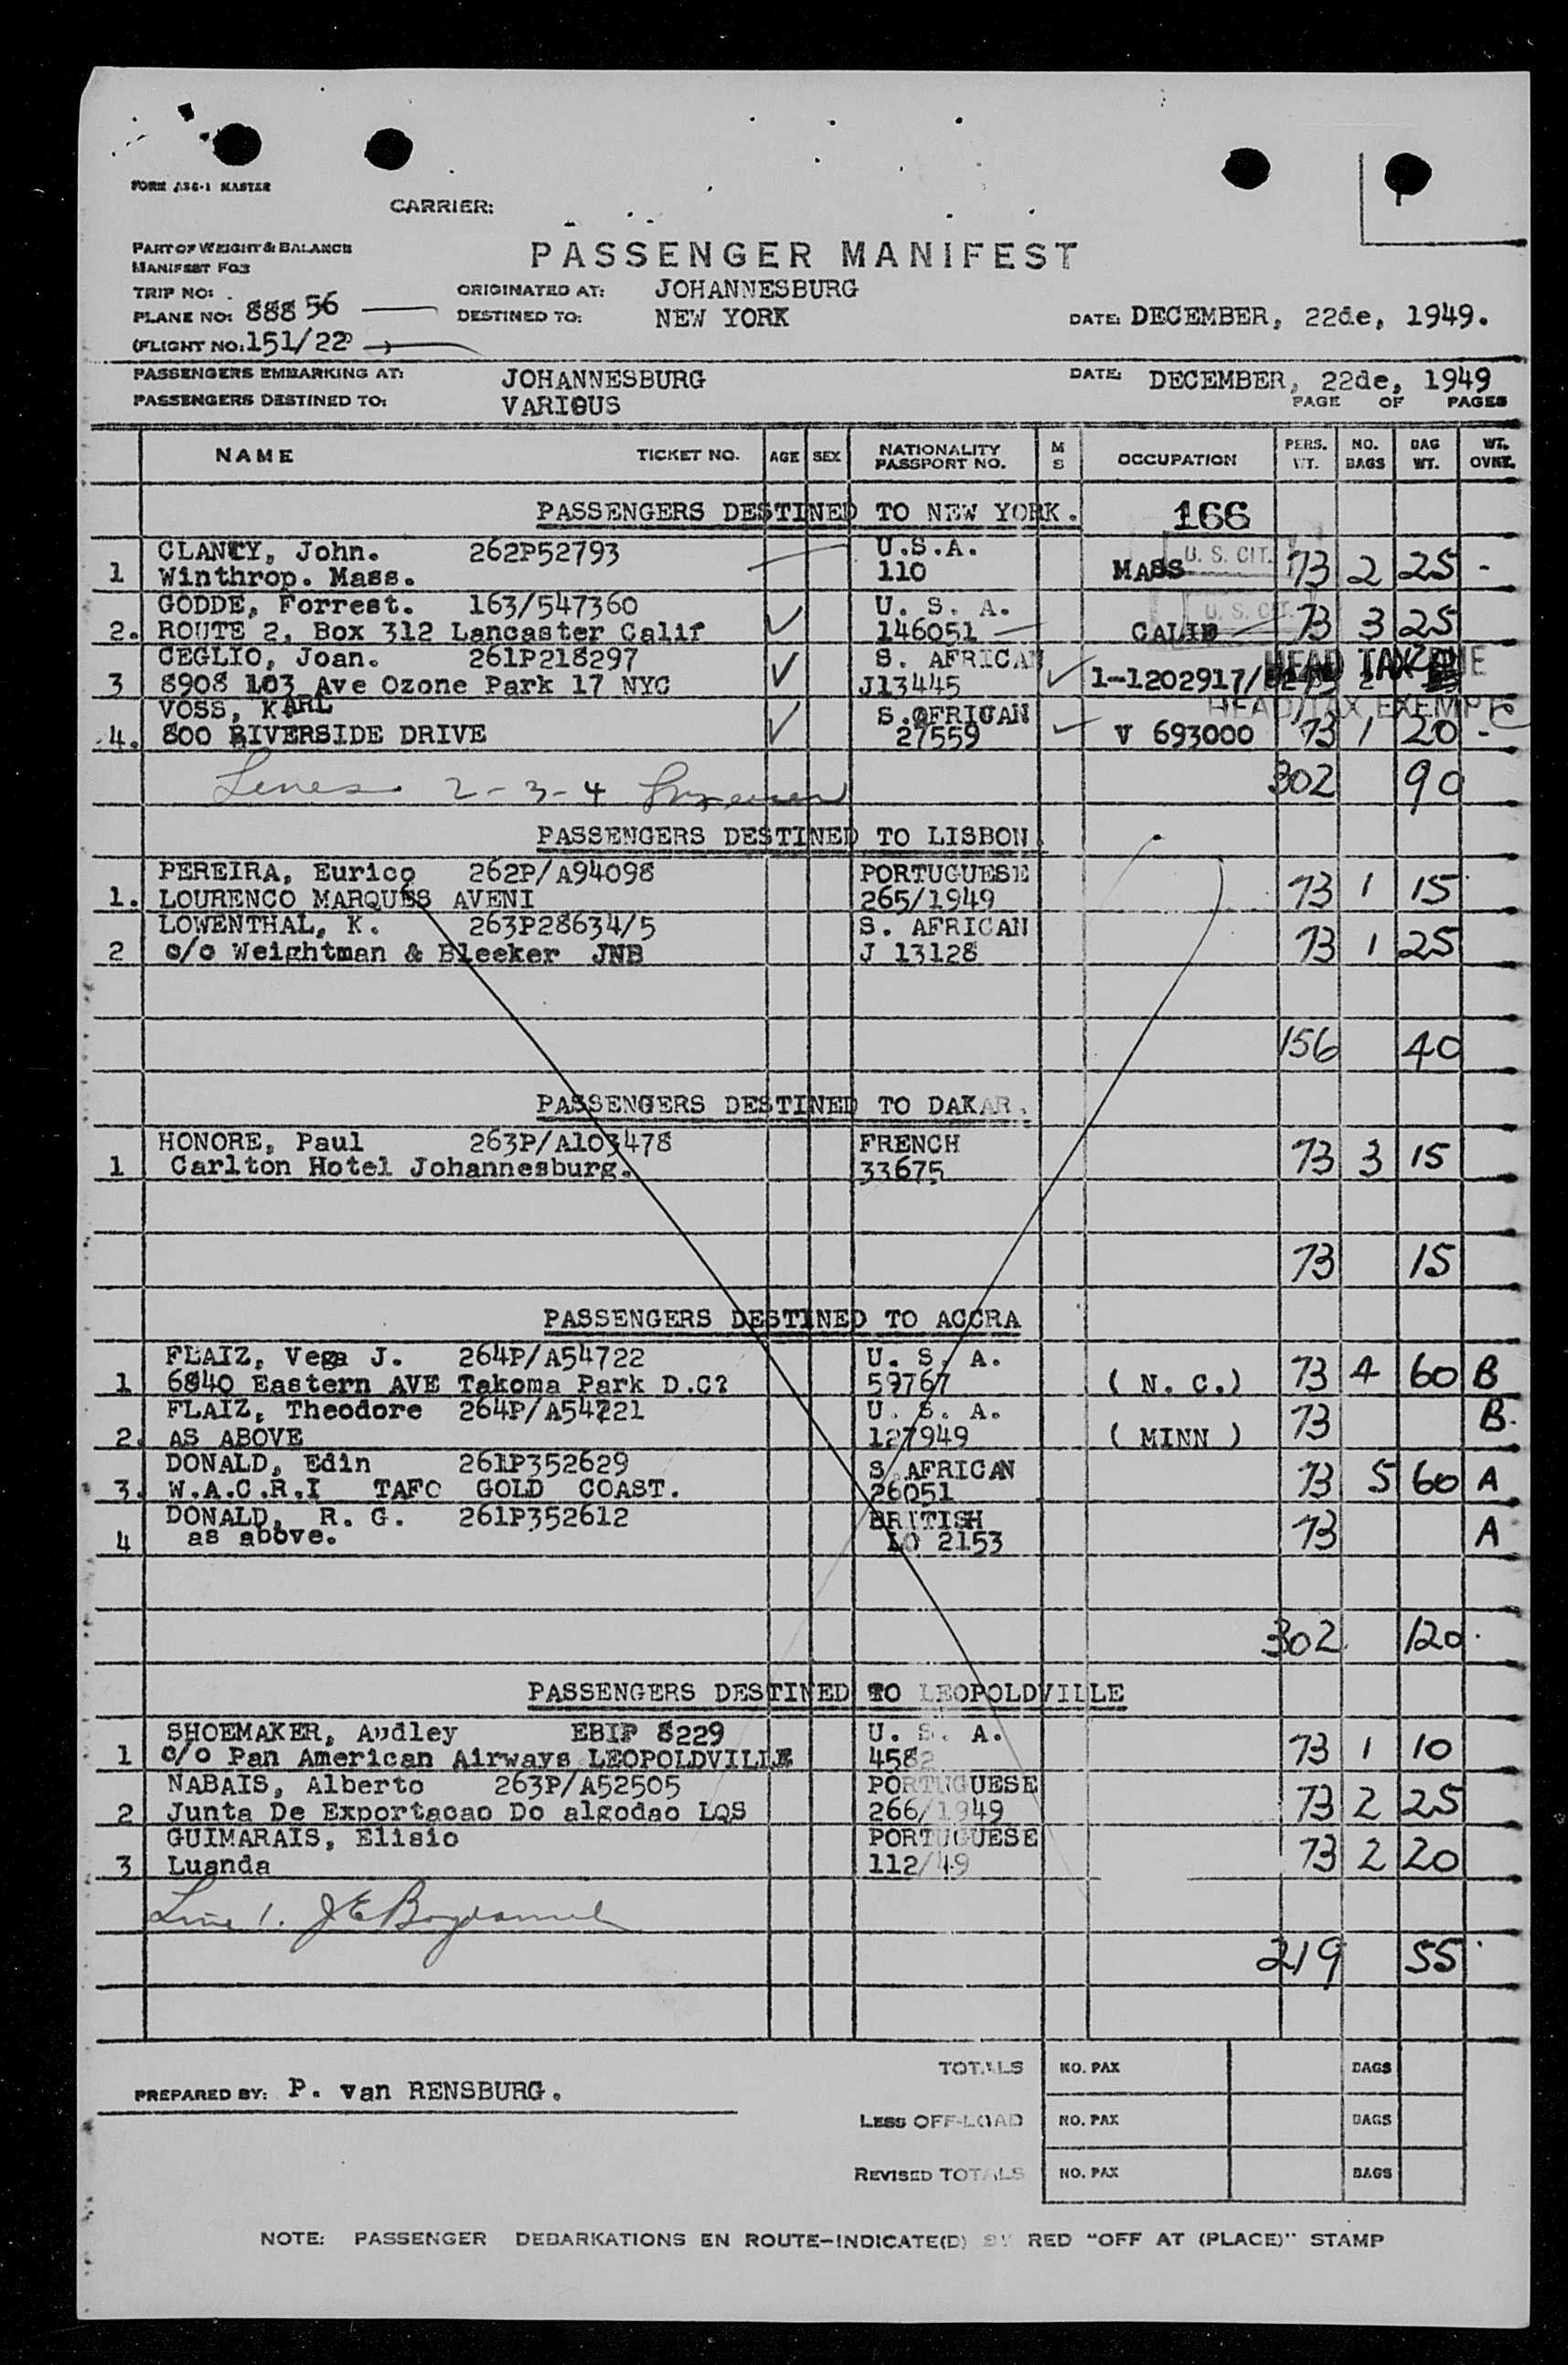 FORM ASC-1 MASTER
CARRIER:
PART OF WEIGHT & BALANCE
MANIFEST FOR
PASSENGER MANIFEST
TRIP NO:
ORIGINATED AT: JOHANNESBURG
PLANE NO: 88856
DESTINED TO: NEW YORK
DATE: DECEMBER, 22de, 1949.
(FLIGHT NO: 151/22
PASSENGERS EMBARKING AT: JOHANNESBURG
DATE: DECEMBER, 22de, 1949
PASSENGERS DESTINED TO: VARIOUS
PAGE OF PAGES
NAME TICKET NO. AGE SEX NATIONALITY PASSPORT NO. M S OCCUPATION PERS. WT. NO. BAGS BAG WT. WT. OVRE.
PASSENGERS DESTINED TO NEW YORK. 166
CLANCY, John. 262P52793 U.S.A. U. S. CIT.
1 Winthrop. Mass. 110 MASS 73 2 25 -
GODDE, Forrest. 163/547360 U. S. A. U. S. CIT.
2. ROUTE 2, Box 312 Lancaster Calif 146051 CALIF 73 3 25
CEGLIO, Joan. 261P218297 S. AFRICAN HEAD TAX
3 8908 103 Ave Ozone Park 17 NYC J13445 1-1202917/
VOSS, KARL S. AFRICAN HEAD TAX EXEMPT
4. 800 RIVERSIDE DRIVE 27559 V 693000 73 1 20 -
Lines 2-3-4 302 90
PASSENGERS DESTINED TO LISBON.
PEREIRA, Eurico 262P/A94098 PORTUGUESE
1. LOURENCO MARQUES AVENI 265/1949 73 1 15
LOWENTHAL, K. 263P28634/5 S. AFRICAN
2 c/o Weightman & Bleeker JNB J 13128 73 1 25
156 40
PASSENGERS DESTINED TO DAKAR.
HONORE, Paul 263P/A103478 FRENCH
1 Carlton Hotel Johannesburg. 33675 73 3 15
73 15
PASSENGERS DESTINED TO ACCRA
FLAIZ, Vega J. 264P/A54722 U. S. A.
1 6840 Eastern AVE Takoma Park D.C? 59767 ( N. C.) 73 4 60 B
FLAIZ, Theodore 264P/A54721 U. S. A.
2. AS ABOVE 127949 ( MINN ) 73 B.
DONALD, Edin 261P352629 S. AFRICAN
3. W.A.C.R.I TAFO GOLD COAST. 26051 73 5 60 A
DONALD, R. G. 261P352612 BRITISH
4 as above. LO 2153 73 A
302 120
PASSENGERS DESTINED TO LEOPOLDVILLE
SHOEMAKER, Audley EBIP 8229 U. S. A.
1 c/o Pan American Airways LEOPOLDVILLE 4582 73 1 10
NABAIS, Alberto 263P/A52505 PORTUGUESE
2 Junta De Exportacao Do algodao LQS 266/1949 73 2 25
GUIMARAIS, Elisio PORTUGUESE
3 Luanda 112/49 73 2 20
Line 1.
219 55
TOTALS NO. PAX BAGS
PREPARED BY: P. van RENSBURG.
LESS OFF-LOAD NO. PAX BAGS
REVISED TOTALS NO. PAX BAGS
NOTE: PASSENGER DEBARKATIONS EN ROUTE-INDICATE(D) BY RED "OFF AT (PLACE)" STAMP